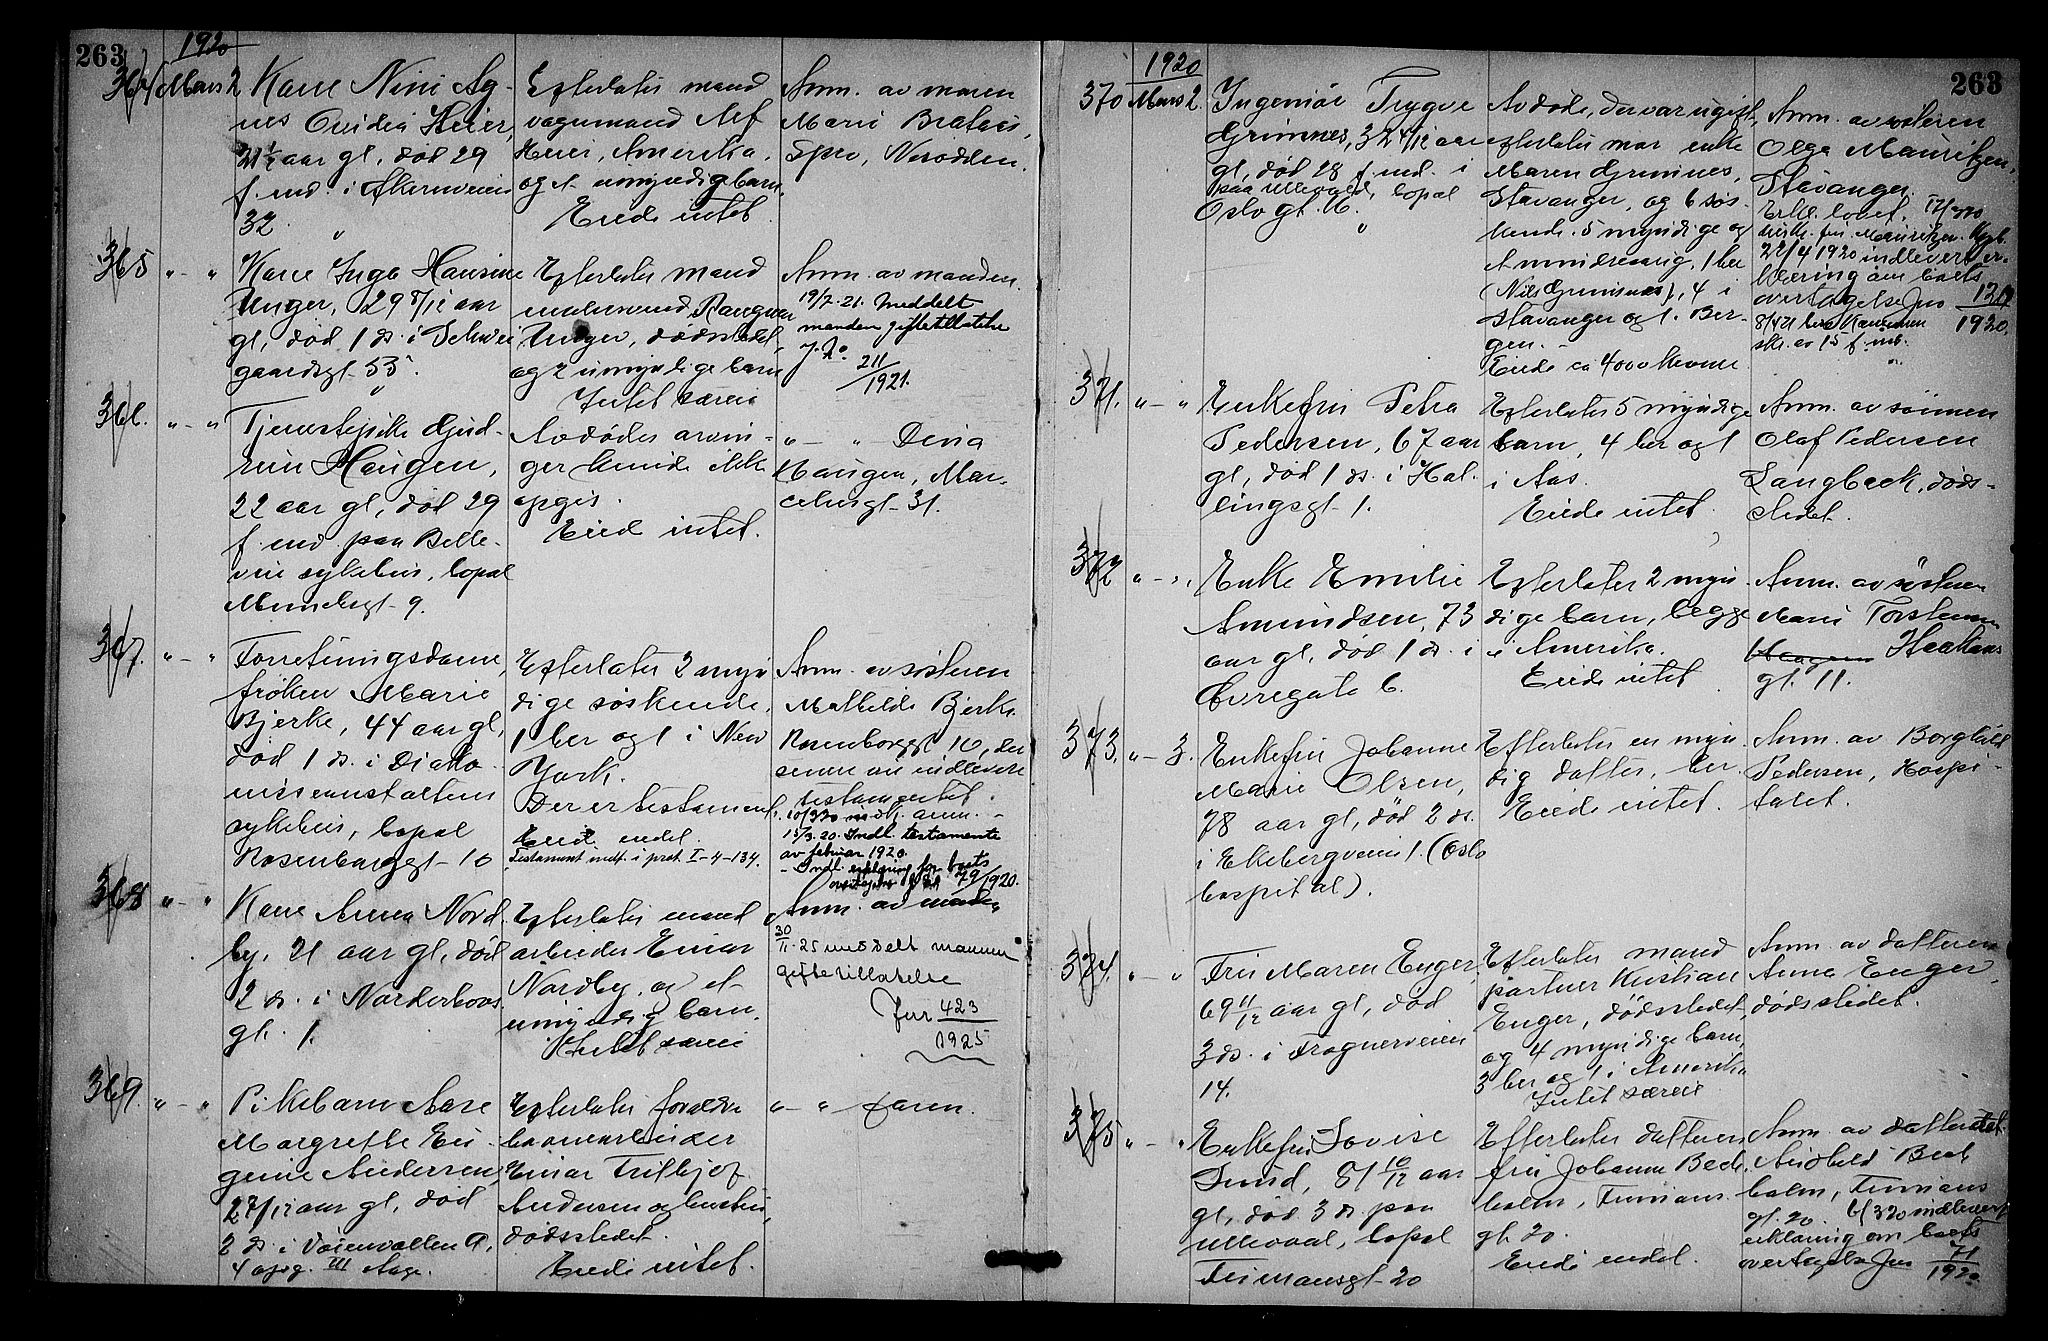 263
1920
364 Mars 2
Kone Nini Ag-
nes Ovidia Heier,
21 1/2 aar gl, død 29
f. md. i Akersveien
32.
Efterlater mand
vognmand Alf
Heier, Amerika,
og et umyndig barn.
Eiede intet.
Anm. av moren
Marie
Spro, Nesodden.
365 " - "
Kone Inga Hansine
Unger, 29 5/12 aar
gl, død 1 ds. i Schwei-
gaardsgt 55.
Efterlater mand
Unger, dødsstedet,
og 2 umyndige barn
Intet særeie
Anm. av manden.
19/7-21. Meddelt
manden giftetillatelse
J. No. 211/1921.
366. " - "
Tjenestepike Gud-
run Haugen,
22 aar gl, død 29
f. md. paa Belle-
vue sykehus, bopæl
Munchsgt 9.
Avdødes arvin-
ger kunde ikke
opgis.
Eied intet.
" - "
Haugen, Mar-
celiusgt 31.
367. " - "
Forretningsdame,
frøken Marie
Bjerke, 44 aar gl,
død 1 ds. i Diako-
nisseanstaltens
sykehus, bopæl
Rosenborggt 10
Efterlater 2 myn-
dige søskende,
1 her og 1 i New
York.
Der er testament.
Eied endel.
Testament indf. i prot. I-4-134.
Anm. av søsteren
Mathilde Bjerke
Rosenborggt 10, der
senere vil indlevere
testamentet.
15/3.20. Indl. testamente
av februar 1920.
- Indl. erklæring for boets
overtagelse 79/1920.
368 " - "
Kone Anna Nord-
by, 21 aar gl, død
2 ds. i Norderhovs
gt. 1.
Efterlater mand
arbeider Einar
Nordby, og et
umyndig barn.
Intet særeie
Anm. av manden
30/11-25 meddelt mannen
giftetillatelse
Jnr 423/1925
369. " - "
Pikebarn Aase
Margrethe Eu-
genie Andersen,
2 7/12 aar gl, død
2 ds. i Voienvolden 9,
4 opg. III etage.
Efterlater forældre
Einar Fritjof
Andersen og hustru,
dødsstedet.
Eiede intet.
" - " faren.
263
1920
370 Mars 2.
Ingeniør Trygve
Grimnes, 32 4/12 aar
gl, død 28 f. md. i
paa Ullevaal, bopæl
Oslo gt. 16.
Avdøde, der var ugift,
efterlater mor enke
Maren Grimnes,
Stavanger, og 6 søs-
kende. 5 myndige og
1 mindreaarig, 1 her
(Nils Grimsnes), 4 i
Stavanger og 1 i Ber-
gen.
Eiede ca 4000 kroner
Anm. av søsteren
Olga Mauritzen,
Stavanger.
22/4 1920 indlevert er-
klæring om boets
overtagelse Jnr 130/1920.
371. " - "
Enkefru Petra
Pedersen, 67 aar
gl, død 1 ds. i Hal-
lingsgt 1.
Efterlater 5 myndige
barn, 4 her og 1
i Aas.
Eiede intet.
Anm. av sønnen
Olaf Pedersen
Langbæck, døds-
stedet.
372 " - "
Enke Emilie
Amundsen, 73
aar gl, død 1 ds. i
Evregate 6.
Efterlater 2 myn-
dige barn, begge
i Amerika.
Eiede intet.
Anm. av søsteren
Marie Torstensen
Haakons
gt. 11.
373. " - 3.
Enkefru Johanne
Marie Olsen,
78 aar gl, død 2 ds.
i Ekebergveien 1. (Oslo
hospital).
Efterlater en myn-
dig datter, her.
Eiede intet.
Anm. av Borghild
Pedersen, Hospi-
talet.
374. " - "
Fru Maren Enger,
69 11/12 aar gl, død
3 ds. i Frognerveien
14.
Efterlater mand
portner Kristian
Enger, dødsstedet,
og 4 myndige barn,
3 her og 1 i Amerika
Intet særeie
Anm. av datteren
Anna Enger,
dødsstedet.
375 " - "
Enkefru Lovise
Lund, 81 10/12 aar
gl, død 3 ds. paa
Ullevaal, bopæl
Tiemansgt 20
Efterlater datteren
fru Johanne Bech-
holm, Tiemans
gt. 20.
Eiede endel.
Anm. av datterdat.
holm, Tiemans
gt. 20. 6/3 20 indlevert
erklæring om boets
overtagelse Jnr 71/1920